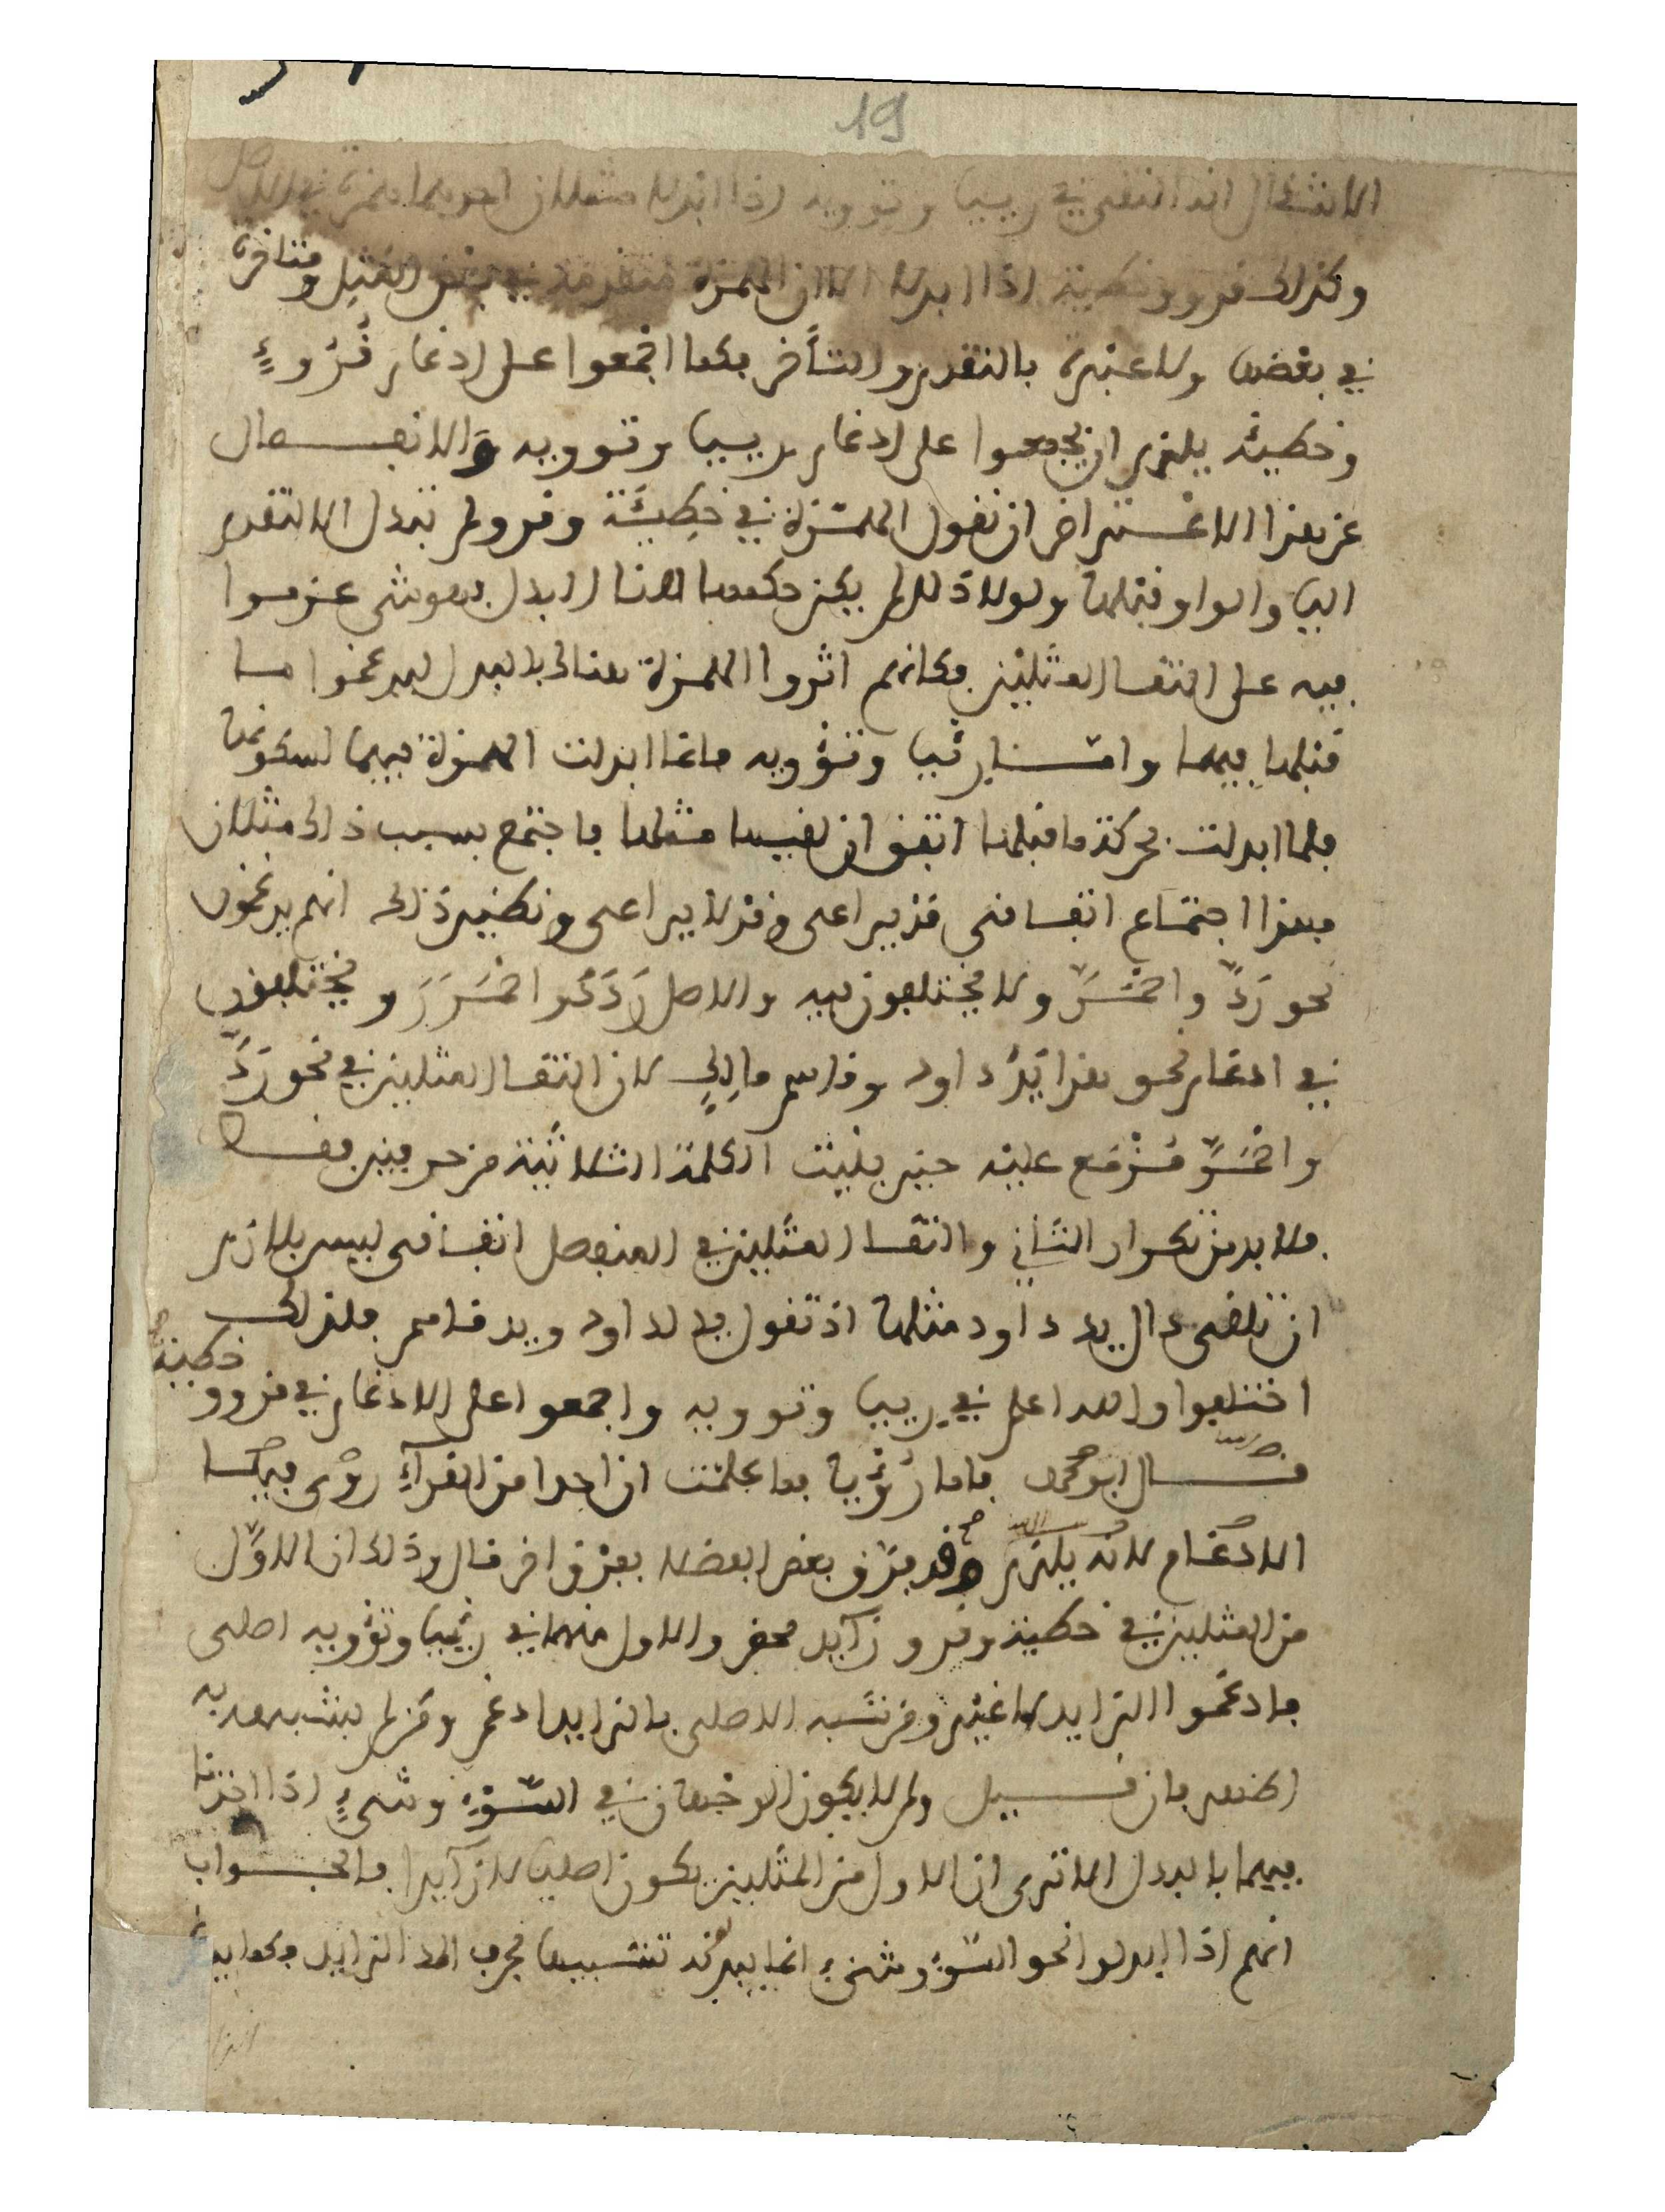 19
الانتقال انه التقى في رييا وتوويه اذا ابدلا مثلان احدهما همزة في الاصل
وكذلك قروو وخطيية اذا ابدلا الا ان الهمزة متقدمة في بعض المثل ومتاخرة
في بعضها ولا عبرة بالتقدم والتأخر فكما اجمعوا على ادغام قُرُوءٍ
وخطيئه يلزم ان يجمعوا على ادغام رييا وتوويه والانفصال
عن هذا الاعتراض ان نقول الهمزة في خطيئة وقرو لم تبدل الا لتقدم
اليا والواو قبلها ولولا ذلك لم يكن حكمها هنا البدل فهو شى عزموا
فيه على التقا المثلين فكانهم اثروا الهمزة هنالك بالبدل ليدغموا ما
قبلها فيها وامّا رئيا وتؤويه فانما ابدلت الهمزة فيهما لسكونها
فلما ابدلت بحركة ما قبلها اتفق ان لقيها مثلها فاجتمع بسبب ذلك مثلان
فهذا اجتماع اتفاقى قد يراعى وقد لا يراعى ونظير ذلك انهم يدغمون
نحو رَدَّ واحْمَرَّ ولا يختلفون فيه والاصل رَدَدَ واحْمَرَرَ ويختلفون
في ادغام نحو هذا يَدُ داود وقاسم مالِكٍ لان التقا المثلين في نحو رَدَّ
واحمرَّ مُزْمَع عليه حين بنيت الكلمة الثلاثية من حرفين فقط
فلا بد من تكرار الثاني والتقا المثلين في المنفصل اتفاقى ليس بلازم
ان تلقى دال يد داود مثلها اذ تقول يد لداود ويد قاسم فلذلك
اختلفوا والله اعلم في رييا وتوويه واجمعوا على الادغام في قروو وخطية
قال ابو محمد فاما رُؤْيا فما علمت ان احدا من القرآءِ روى فيها
الادغام لانه يلزم وقد فرّق بعض ابعضلا بفرق اخر قال وذلك ان الاوّل
من المثلين في خطية وقرو زآيد محض والاول منهما في رئيا وتؤويه اصلى
فادغموا الزايد لا غير وقد شبه الاصلى بالزايد ادغم ومن لم يشبهه به
اظهر فان قيل ولم لا يكون الوجهان في السُّوْءِ وشىءٍ اذا اخذنا
فيهما بالبدل الا ترى ان الاول من المثلين يكون اصليا لا زآيدا فالجواب
انهم اذا ابدلوا نحو السُّوْء وشىْء انما يبدلونه تشبيها بحرف المد الزايد فكما